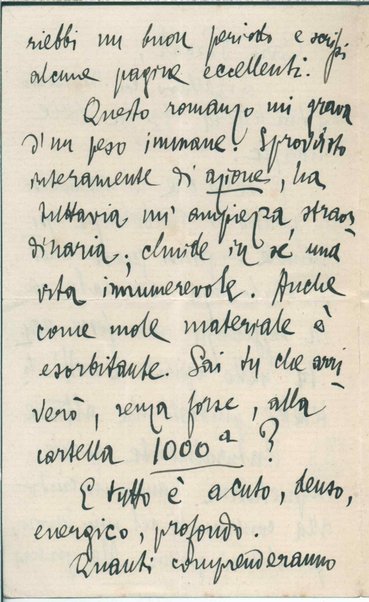 riebbi un buon periodo e scrissi
alcune pagine eccellenti.
Questo romanzo mi grava
d'un peso immane. Sprovvisto
interamente di azione, ha
tuttavia un' ampiezza straor
dinaria; chiude in sé una
vita innumerevole. Anche
come mole materiale è
esorbitante. Sai tu che arri
verò, senza forse, alla
cartella 1000a?
E tutto è acuto, denso,
energico, profondo.
Quanti comprenderanno